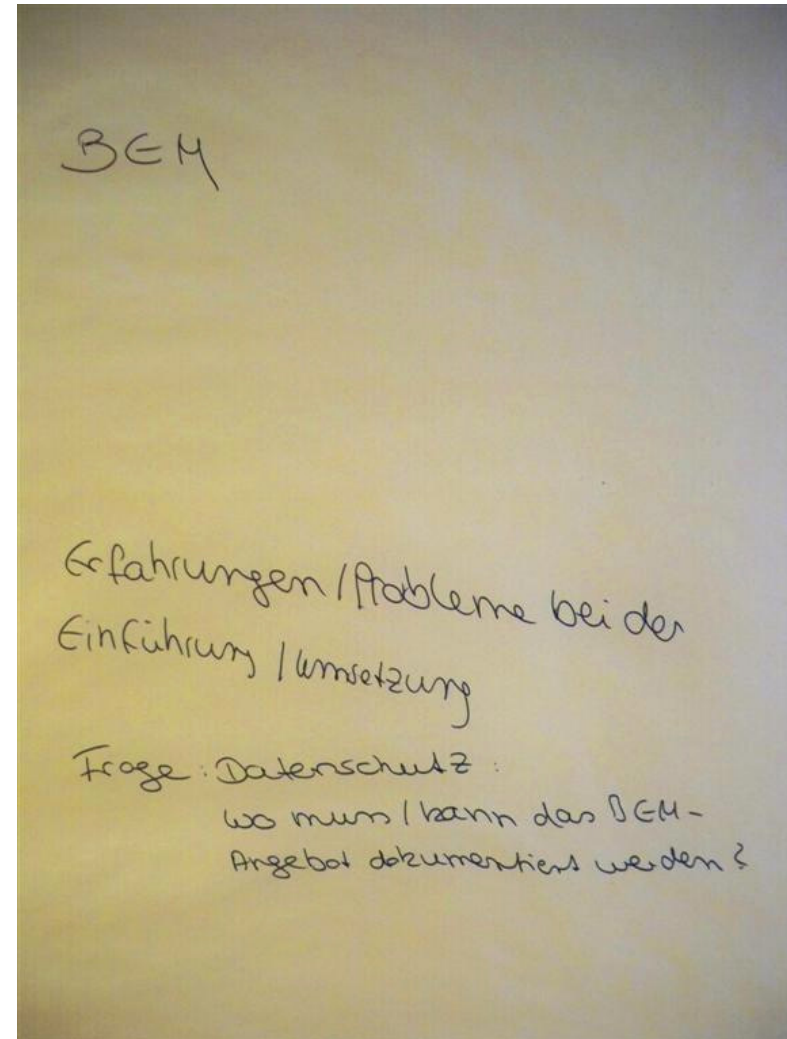 BEM
Erfahrungen / Probleme bei der
Einführung / Umsetzung
Frage: Datenschutz:
wo muss / kann das BEM-
Angebot dokumentiert werden?